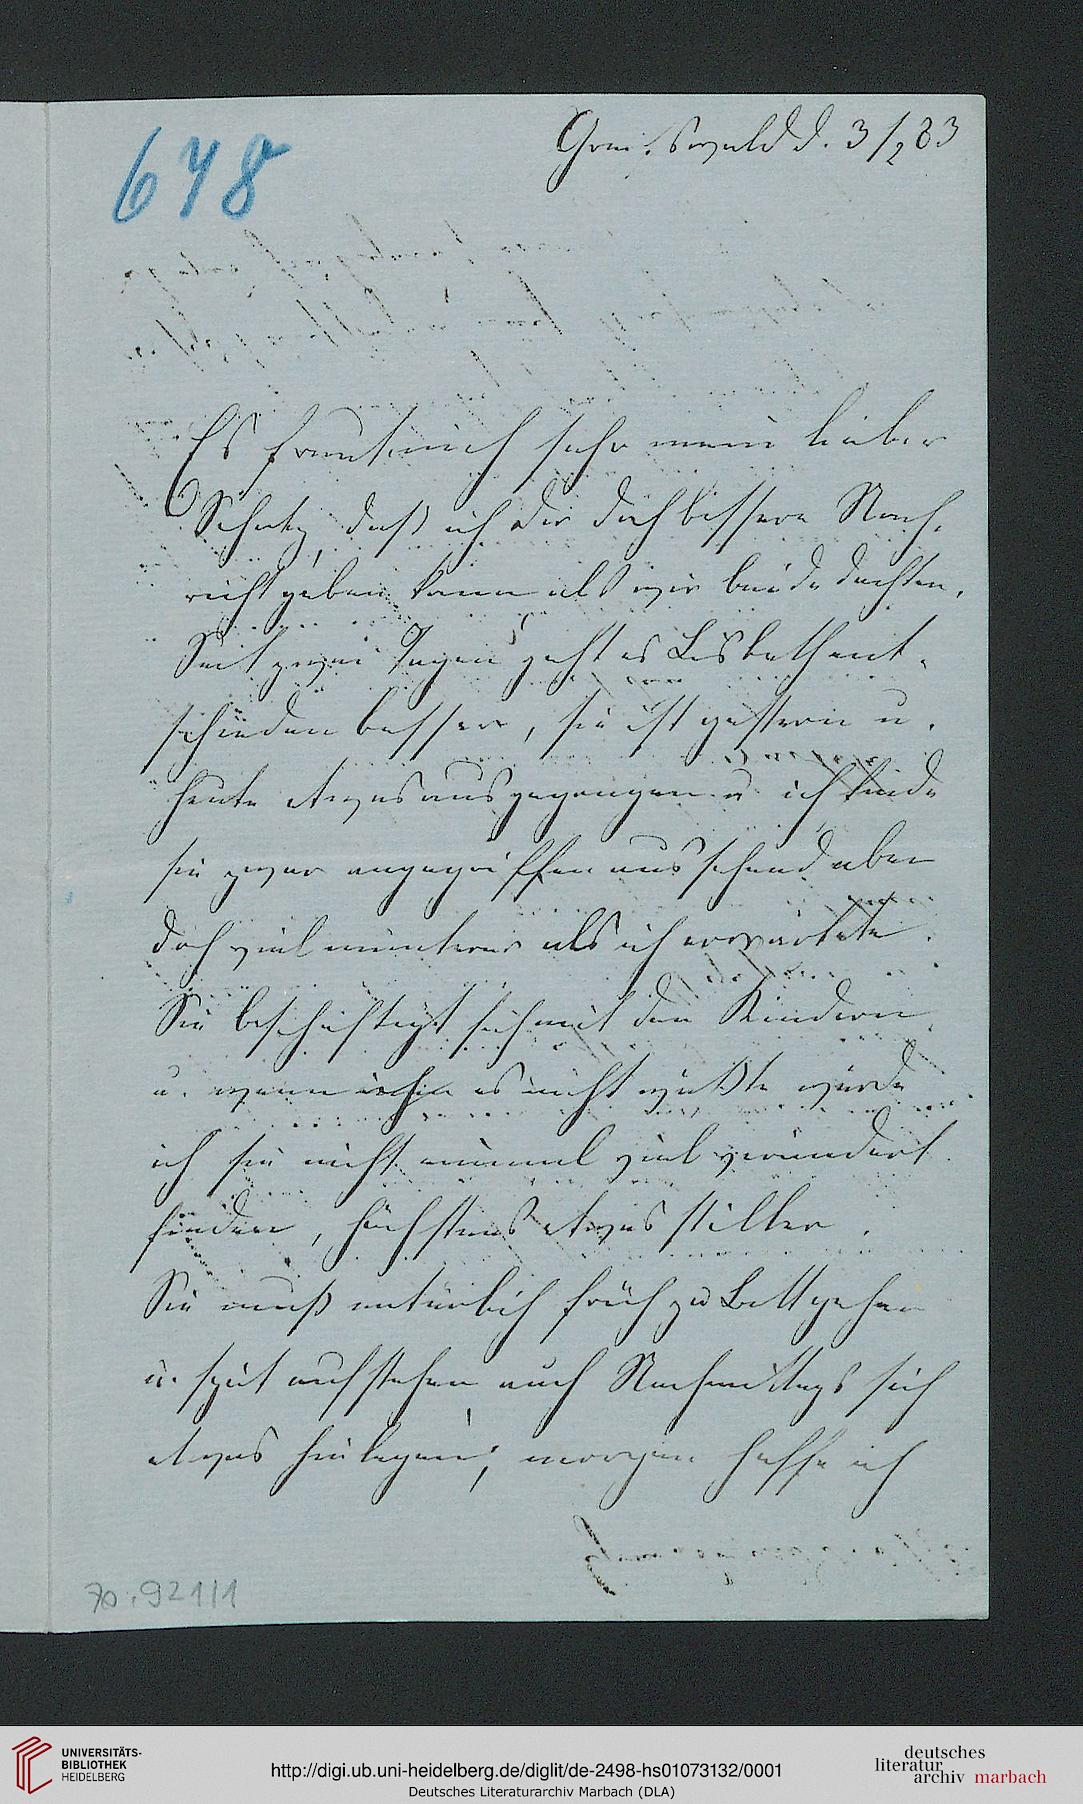 648
Greifswald d. 3/2 83
Es freut mich sehr mein lieber
Schatz, daß ich dir doch bessere Nach-
richt geben kann als wir beide dachten.
Seit zwei Tagen geht es Lisbeth ent-
schieden besser, sie ist gestern u.
heute etwas ausgegangen u. ich finde
sie zwar angegriffen aussehend aber
doch viel munterer als ich erwartete.
Sie beschäftigt sich mit den Kindern
u. wenn ich es nicht wüßte würde
ich sie nicht einmal viel verändert
finden, höchstens etwas stiller.
Sie muß natürlich früh zu Bett gehen
u. spät aufstehen auch Nachmittags sich
etwas hinlegen; morgen hoffe ich
70.921/1
UNIVERSITÄTS-
BIBLIOTHEK
HEIDELBERG
http://digi.ub.uni-heidelberg.de/diglit/de-2498-hs01073132/0001
Deutsches Literaturarchiv Marbach (DLA)
deutsches
literatur
archiv marbach